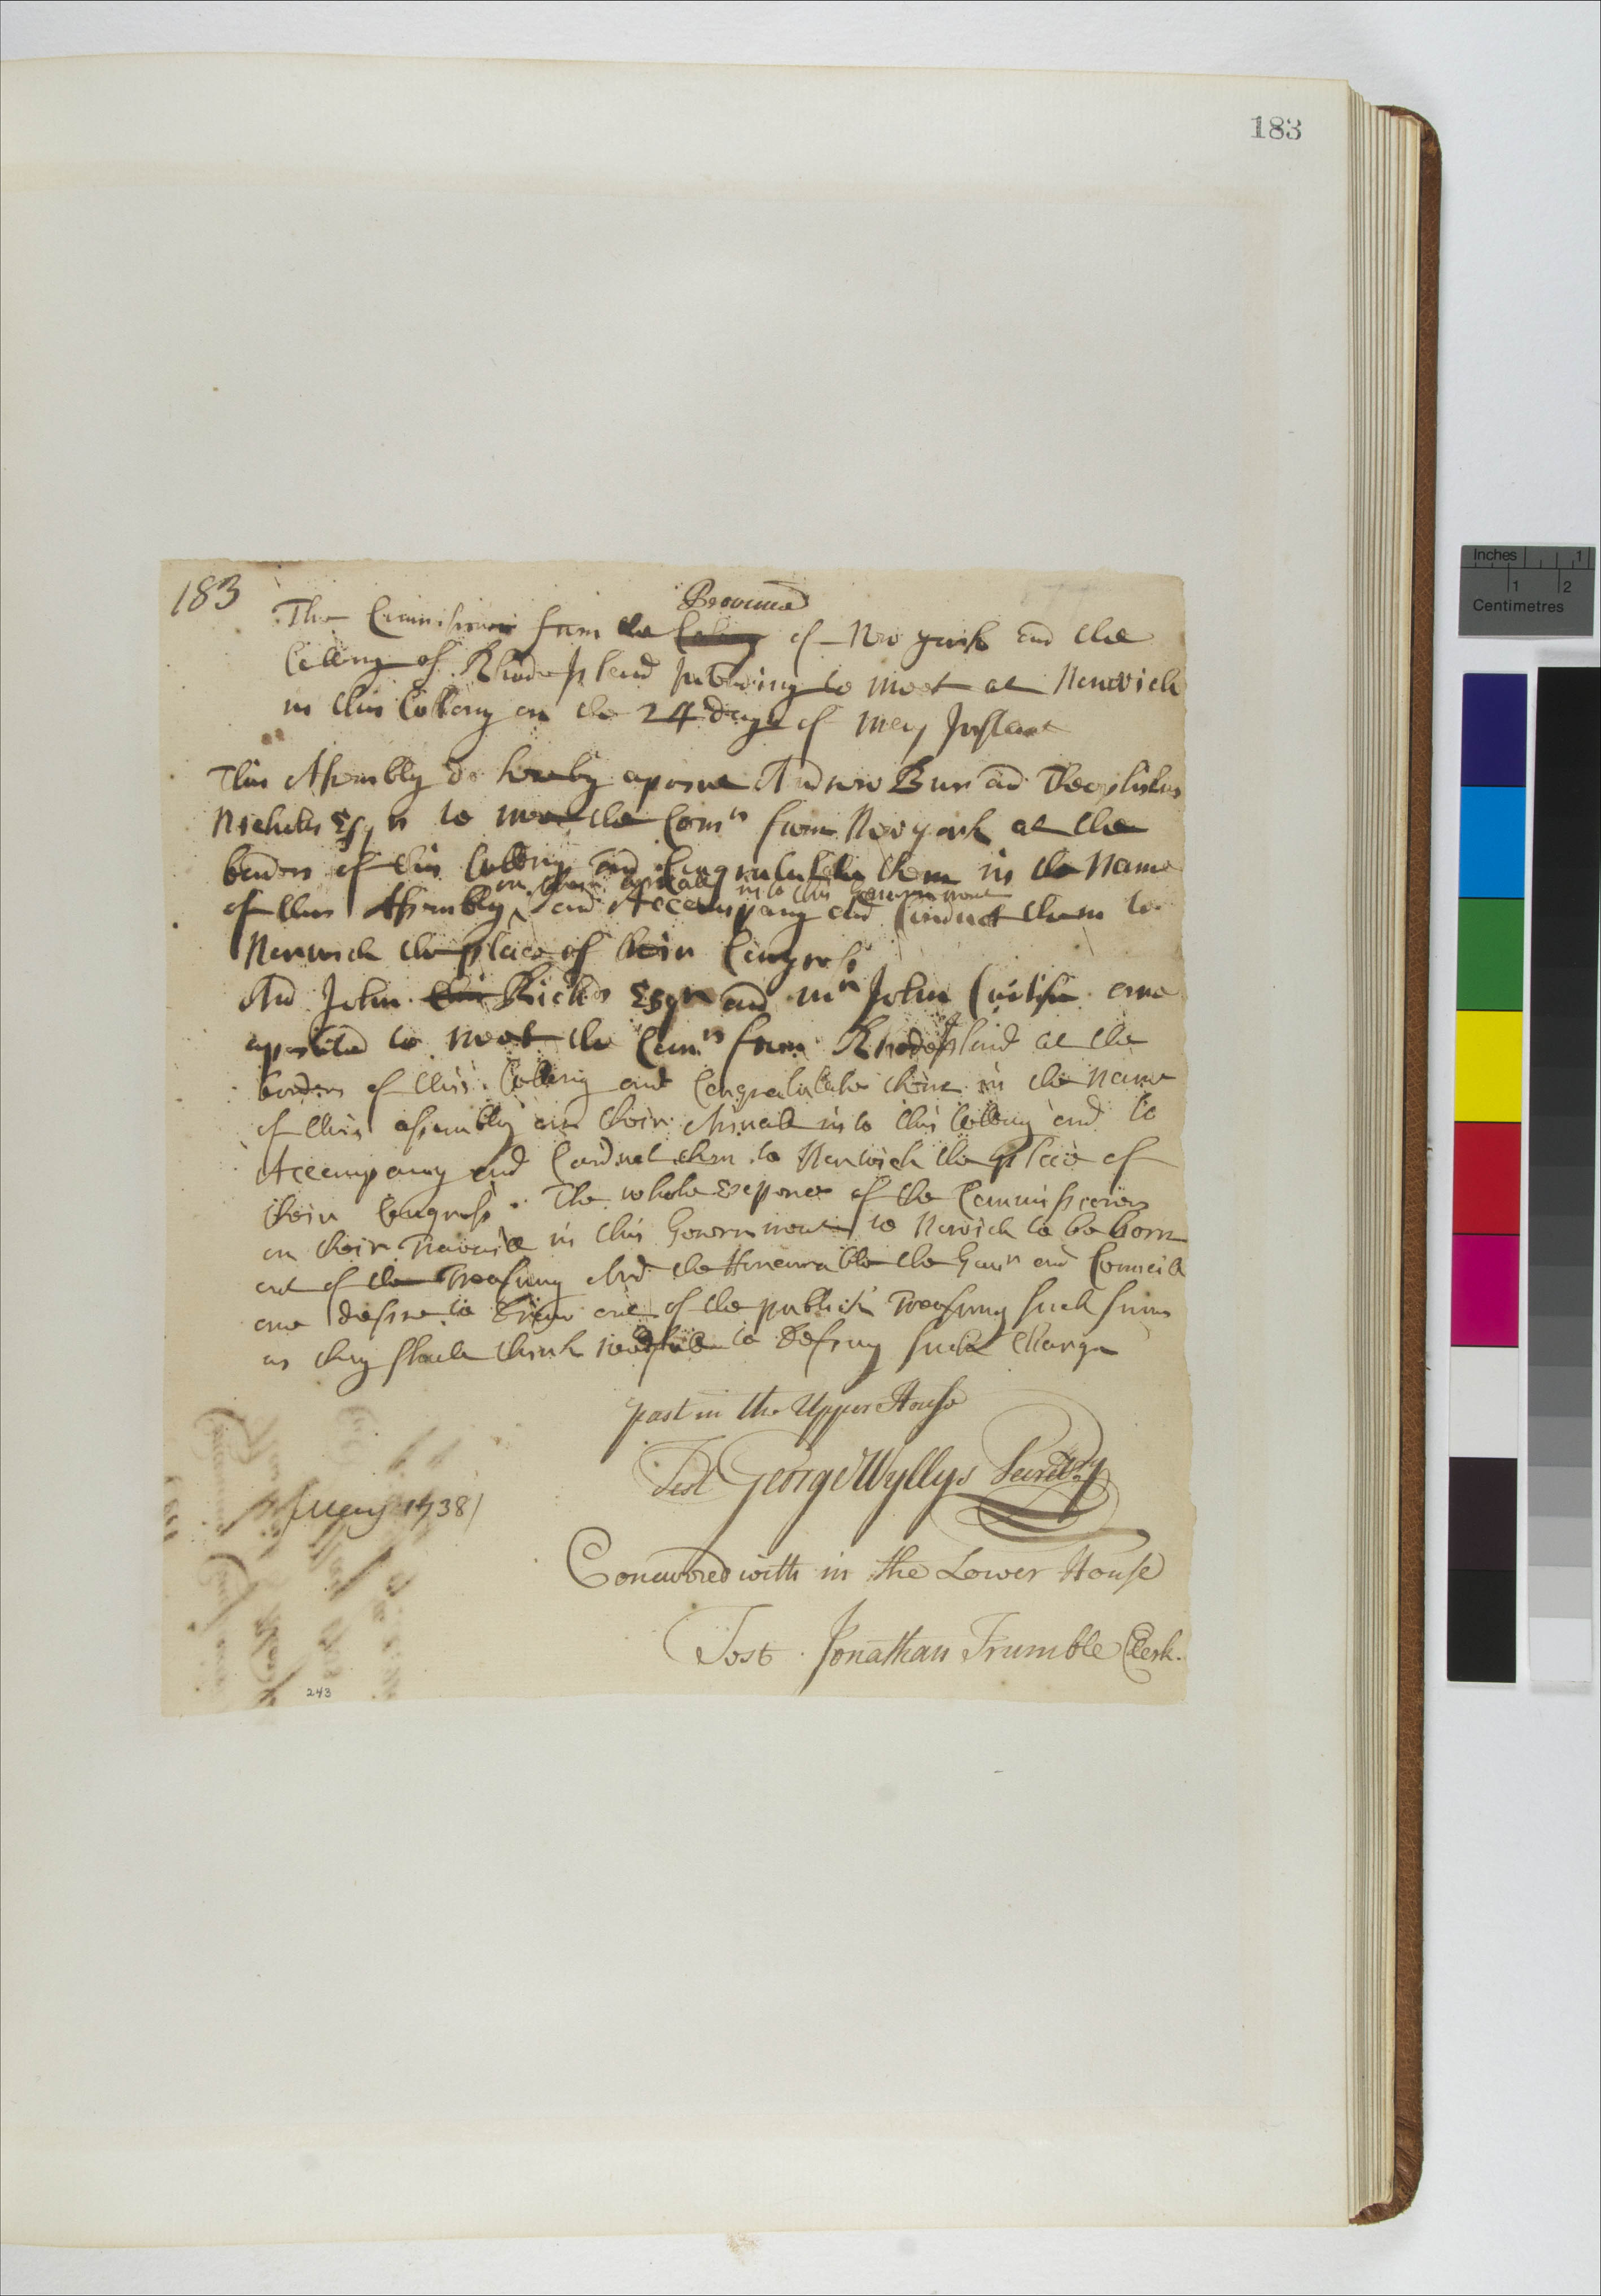 183
183
Province
The Commissioners from the Colony of New york and the
Collony of Rhode Island Intending to meet at Norwich
in this Collony on the 24 day of May Instant
This Assembly do hereby apoint Andrew Burr and Theophilus
Nichols Esqrs to meet the Comrs from New york at the
borders of this Collony and Congratulate them in the Name
on their arivall into this Government
of this Assembly and Accompany and Conduct them to
Norwich the place of their Congress
And John Richds Esqr and mr John Curtiss are
apointed to meet the Comrs from Rhode Island at the
borders of this Collony and Congratulate them in the Name
of this assembly on their Arivall into this Collony and to
Accompany and Conduct them to Norwich the place of
their Congress. The whole Expence of the Commissioners
on their Travaile in this Government to Norwich to be born
out of the Treasury And the Honourable the Govr and Councill
are desire to Draw out of the publick Treasury such sums
as they shall think needfull to Defray such Charge
past in the Upper House
Test George Wyllys Secretry
May 1738
Concurred with in the Lower House
Test Jonathan Trumble Clerk.
243
Inches 1
1 2
Centimetres